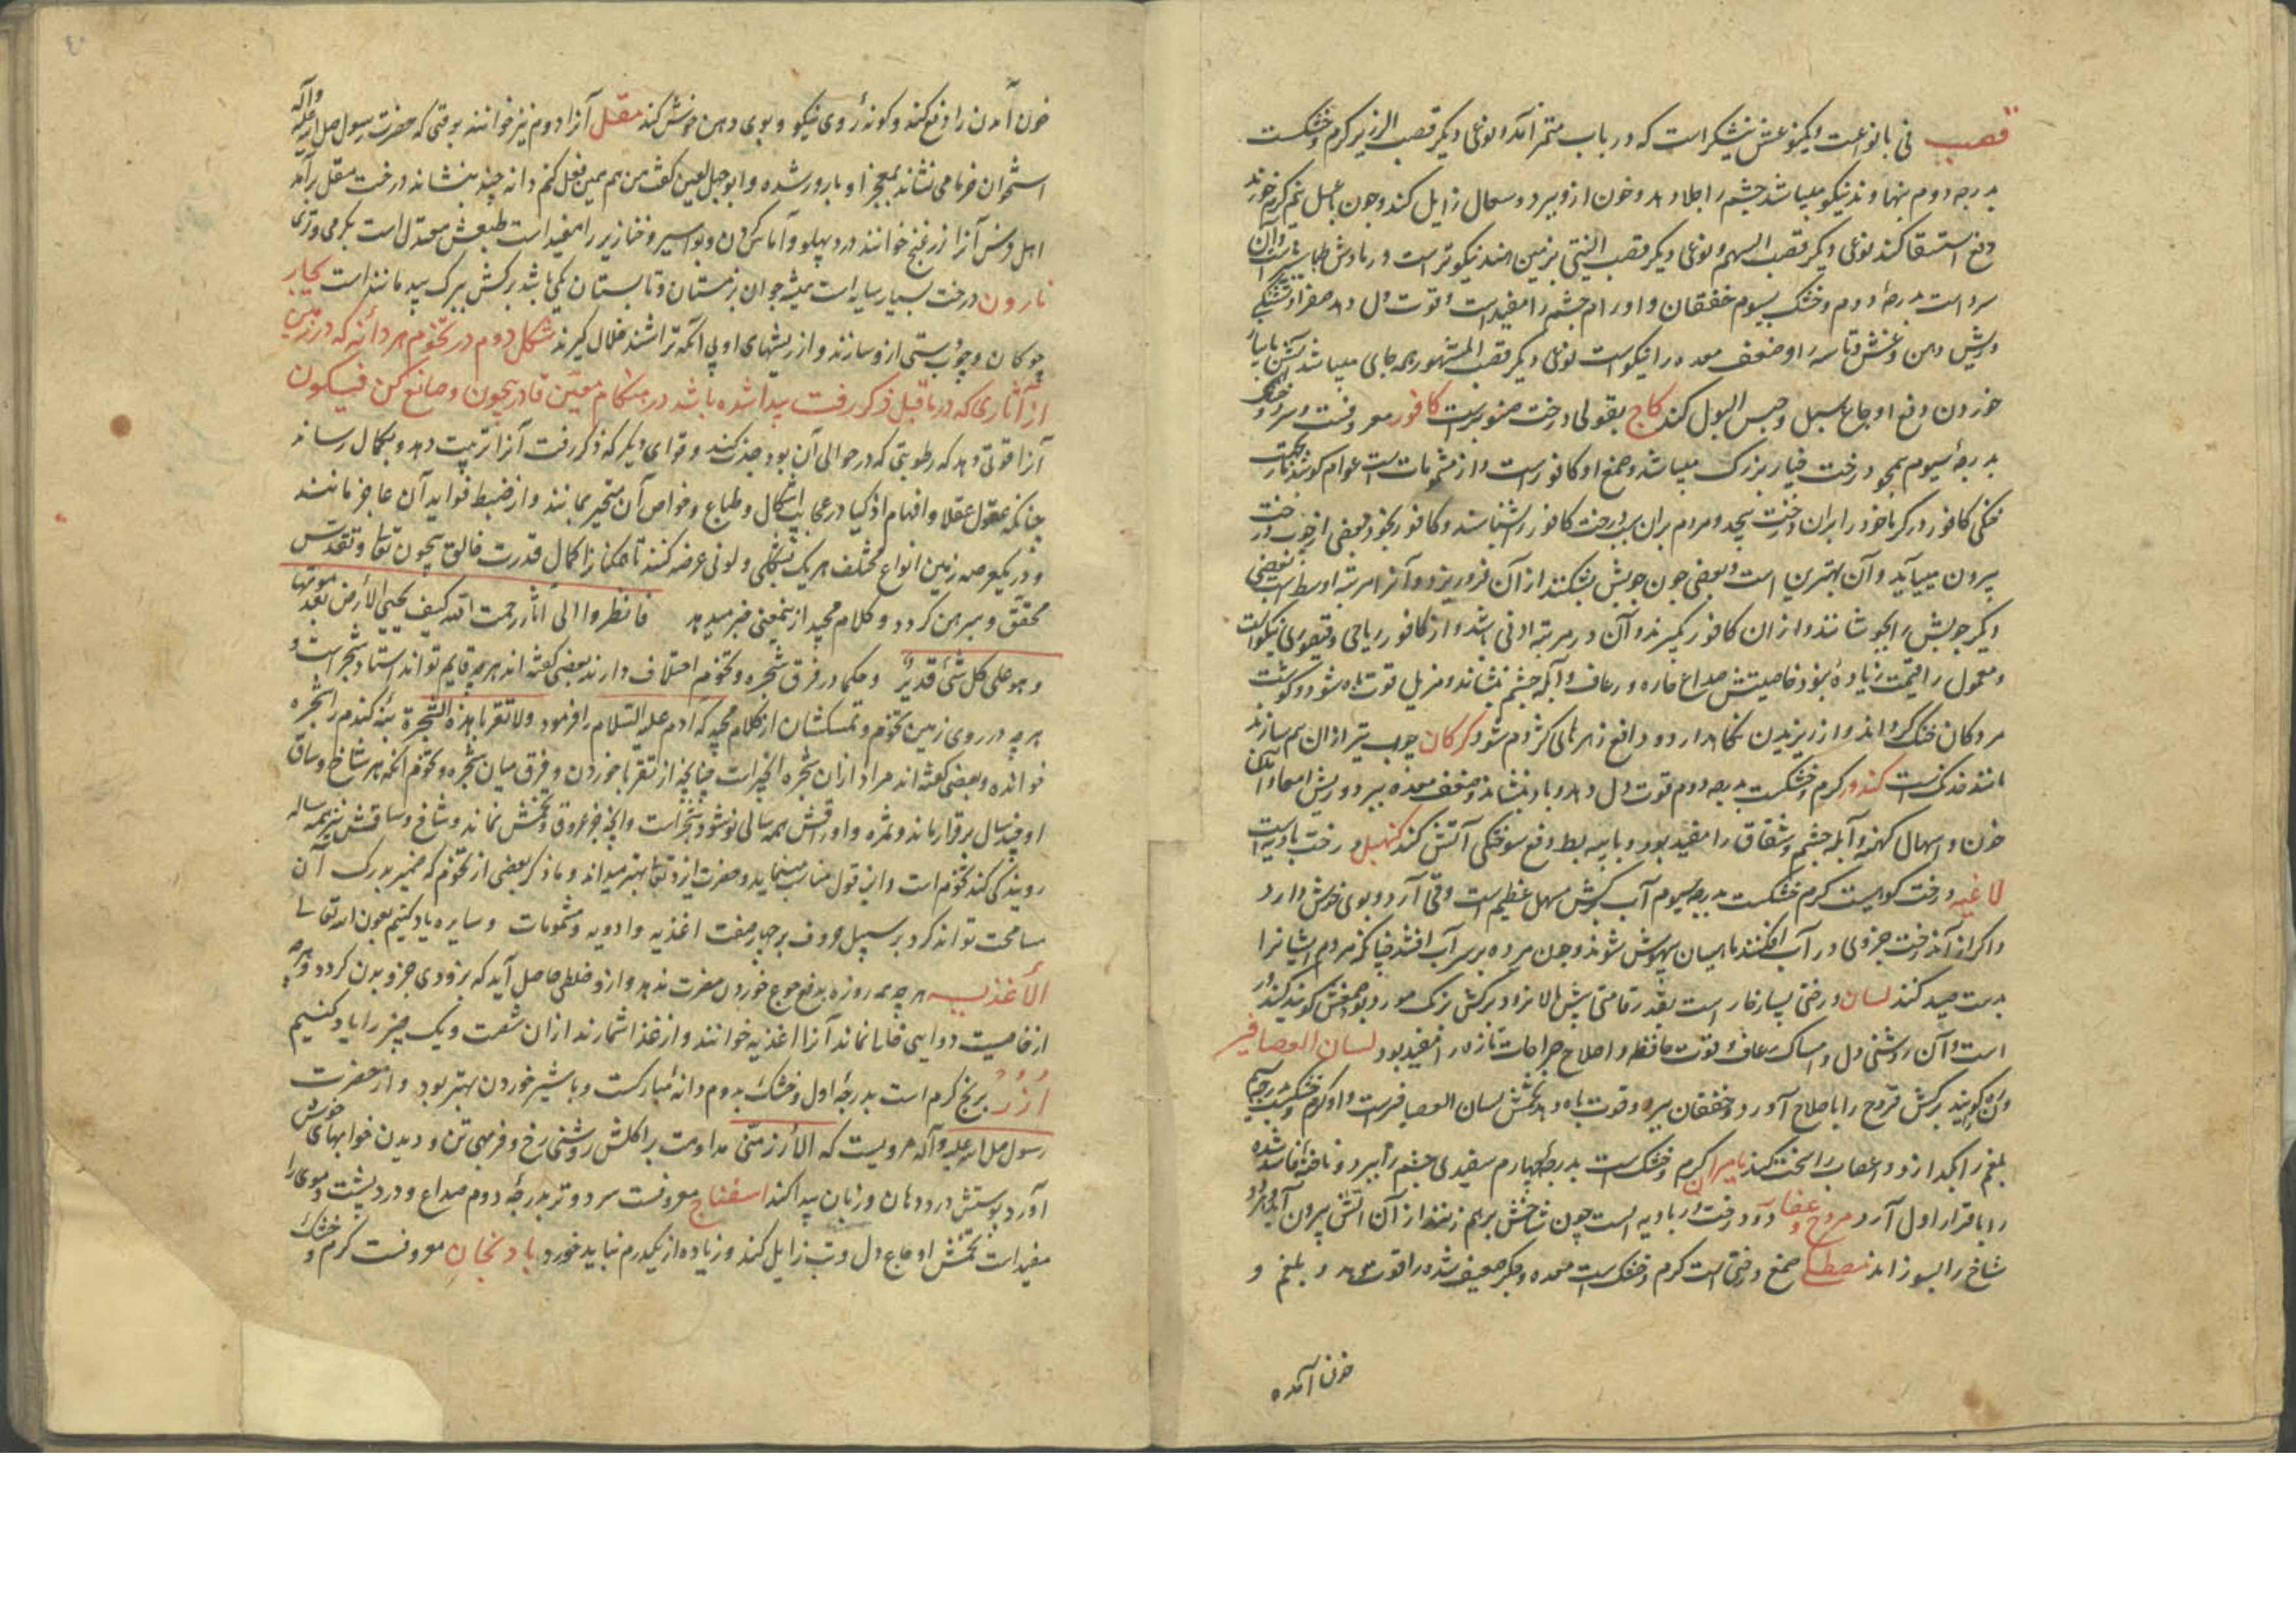 قصب نی بانواعست یکنوعش نیشکر است که در باب مثمر آمد و نوعی دیگر قصب الزریر گرم و خشکست
بدرجه دوم بنهاوند نیکو میباشد چشم را جلا دهد و خون ازو ببرد و سعال زایل کند و چون با عسل تخم کرفس خورند
دفع استسقا کند نوعی دیگر قصب السهم و نوعی دیگر قصب الینتی بزمین هند نیکوتر است درمانش طباشیر است و آن
سرد است بدرجهٔ دوم و خشک بسیوم خفقان و اورام چشم را مفید است و قوت دل دهد صفرا و تشنگی
و ریش دهن و غش و تاسه را و ضعف معده را نیکوست نوعی دیگر قصب المشهور همه جای میباشد
خوردن دفع اوجاع سبل و حبس البول کند کاج بقولی درخت صنوبرست کافور معروفست و سرد و خشک
بدرجهٔ سیوم همچو درخت خیار بزرک میباشد و صمغ او کافورست و از مشمومات است عوام کویند مار بجهت
خنکی کافور در کرما خود را بران درخت پیچد و مردم بران سبب درخت کافور را شناسند و کافور بعضی از چوب درخت
بیرون میآید و آن بهترین است و بعضی چون چوبش بشکنند از آن فرو ریزد و آنرا مرتبه اوسط است بعضی
دیگر چوبش را بجوشانند و از ان کافور کیرند و آن در مرتبه ادنی باشد و از کافور ریاحی و قیصوری نیکوست
و معمول را قیمت زیاده نبود خاصیتش صداع حاره و رعاف و آبله چشم بنشاند و مزیل قوت باه شود و کوشت
مردکان خنک کرداند و از ریزیدن نکاهدارد و دافع زهرهای کژدم شود کرکان چوب تیر از ان هم سازند
مانند خدنکست کندور کرم و خشکست بدرجه دوم قوت دل دهد و باد بنشاند و ضعف معده ببرد و ریش امعا و آمدن
خون و اسهال کهنه و آبله چشم و شقاق را مفید بود و با پیه بط دفع سوختکی آتش کند کنهبل درخت بادیه است
لاغیه درخت کوهیست کرم خشکست بدرجه سیوم آب برکش مسهل عظیم است و قی آرد و بوی خوش دارد
و اکر از آن درخت جزوی در آب افکنند ماهیان بیهوش شوند و چون مرده بر سر آب افتند چنانکه مردم ایشانرا
بدست صید کنند لسان درختی بسیار خار است بقدر قامتی بیش بالا نرود برکش برنک مورد بود صمغش کویند کندر
است و آن روشنی دل و امساک رعاف و قوت حافظه و اصلاح جراحات تازه را مفید بود لسان العصافیر
ون کویند برکش قروح را باصلاح آورد و خفقان ببرد و قوت باه دهد تخمش لسان العصافیرست و او کرم و خشکست
بلغم را بکدازد و اعصاب را سخت کند مامیران کرم و خشک است بدرجهٔ چهارم سفیدی چشم را ببرد و ناخنهٔ فاسد شده
را باقرار اول آرد مرخ و عفار دو درخت در بادیه است چون شاخش بر هم زنند از آن آتش بیرون آید
شاخ را بسوزاند مصطکی صمغ درختی است کرم و خشک است معده و جکر ضعیف شده را قوت دهد و بلغم و
خون آمدن
خون آمدن را دفع کند و کونهٔ روی نیکو و بوی دهن خوش کند مقل آنرا دوم نیز خوانند بوقتی که حضرت رسول صلی الله علیه و آله
استخوان خرما می نشاند بمعجز او بارور شده و ابوجهل لعین کفت من هم همین فعل کنم دانه چند بنشاند درخت مقل برآمد
اهل فرس آنرا زرغنج خوانند درد پهلو و آماس کردن و بواسیر و خنازیر را مفید است طبعش معتدل است بکرمی و تری
نارون درخت بسیار سایه است همیشه جوان بزمستان و تابستان یکی باشد برکش ببرک بید مانند است کجار
چوکان و چوب دستی ازو سازند و از ریشهای او پی آنکه تراشند خلال کیرند شکل دوم در تخوم هر دانه که در زمین
از آثاری که در ماقبل ذکر رفت پیدا شده باشد در هنکام معین قادر بیچون و صانع کن فیکون
آنرا قوتی دهد که رطوبتی که در حوالی آن بود جذب کند و قوای دیگر که ذکر رفت آنرا تربیت دهد و بکمال رساند
چنانکه عقول عقلا و افهام اذکیا در عجایب اشکال و طباع و خواص آن متحیر بمانند و از ضبط فواید آن عاجز مانند
و در یکعرصه زمین انواع مختلف هر یک بشکلی و لونی عرضه کنند تا همکنانرا کمال قدرت خالق بیچون تعالی و تقدس
محقق و مبرهن کردد و کلام مجید از ینمعنی خبر میدهد فانظروا الی آثار رحمت الله کیف یحیی الأرض بعد موتها
و هو علی کل شئ قدیر و حکما در فرق شجره و تخوم اختلاف دارند بعضی کفته اند هرچه قایم تواند استاد شجر است و
هرچه در روی زمین تخوم و تمسکشان از کلام مجید که آدم علیه السلام را فرمود ولا تقربا هذه الشجرة بته کندم را شجره
خوانده و بعضی کفته اند مراد از ان شجره انجیر است چنانچه از تقربا خوردن و فرق میان شجره و تخوم آنکه هر شاخ و ساق
او چند سال برقرار ماند و ثمره و اوراقش همه سالی نو شود شجر است و آنچه جز عروق و تخمش نماند و شاخ و ساقش نیز همه ساله
رویندکی کند تخوم است و این قول مناسب مینماید و حضرت ایزد تعالی بهتر میداند و ما ذکر بعضی از تخوم که ضمیر بدرک آن
مسامحت تواند کرد بر سبیل حروف بر چهار صفت اغذیه و ادویه و مشمومات و سایره یاد کنیم بعون الله تعالی
الأغذیه هرچه همه روزه بدفع جوع خوردن مضرت ندهد و ازو خلطی حاصل آید که بزودی جزو بدن کردد و هرچه
از خاصیت دوایی خایا نماند آنرا اغذیه خوانند و از غذا شمارند از ان شصت و یک چیز را یاد کنیم
ارز برنج کرم است بدرجهٔ اول و خشک بدوم دانهٔ مبارکست و با شیر خوردن بهتر بود و از حضرت
رسول صلی الله علیه و آله مرویست که الأرز منی مداومت بر اکلش روشنی رخ و فربهی تن و دیدن خوابهای خوش
آورد پوستش درد دهان و زبان پیدا کند اسفناج معروفست سرد و تر بدرجهٔ دوم صداع و درد پشت و موی را
مفید است تخمش اوجاع دل و تب زایل کند و زیاده از یکدرم نباید خورد بادنجان معروفست کرم و خشک و